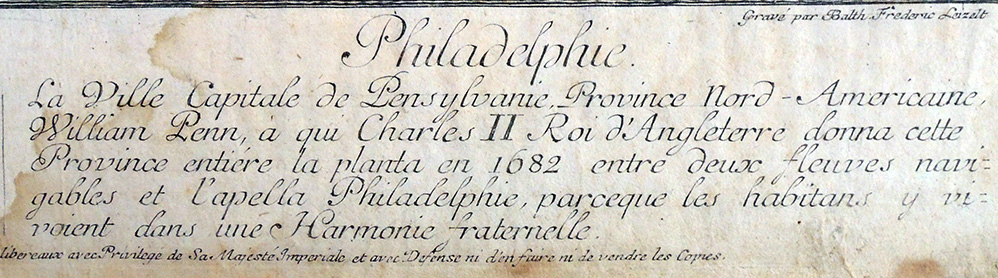 Gravé par Balth Frederic Leizelt
Philadelphie.
La Ville Capitale de Pensylvanie, Province Nord-Americaine,
William Penn, à qui Charles II Roi d'Angleterre donna cette
Province entiére la planta en 1682 entre deux fleuves navi-
gables et l'apella Philadelphie, parceque les habitans y vi-
voient dans une Harmonie fraternelle.
libereaux avec Privilege de Sa Majesté Imperiale et avec Defense ni d'en faire ni de vendre les Copies.